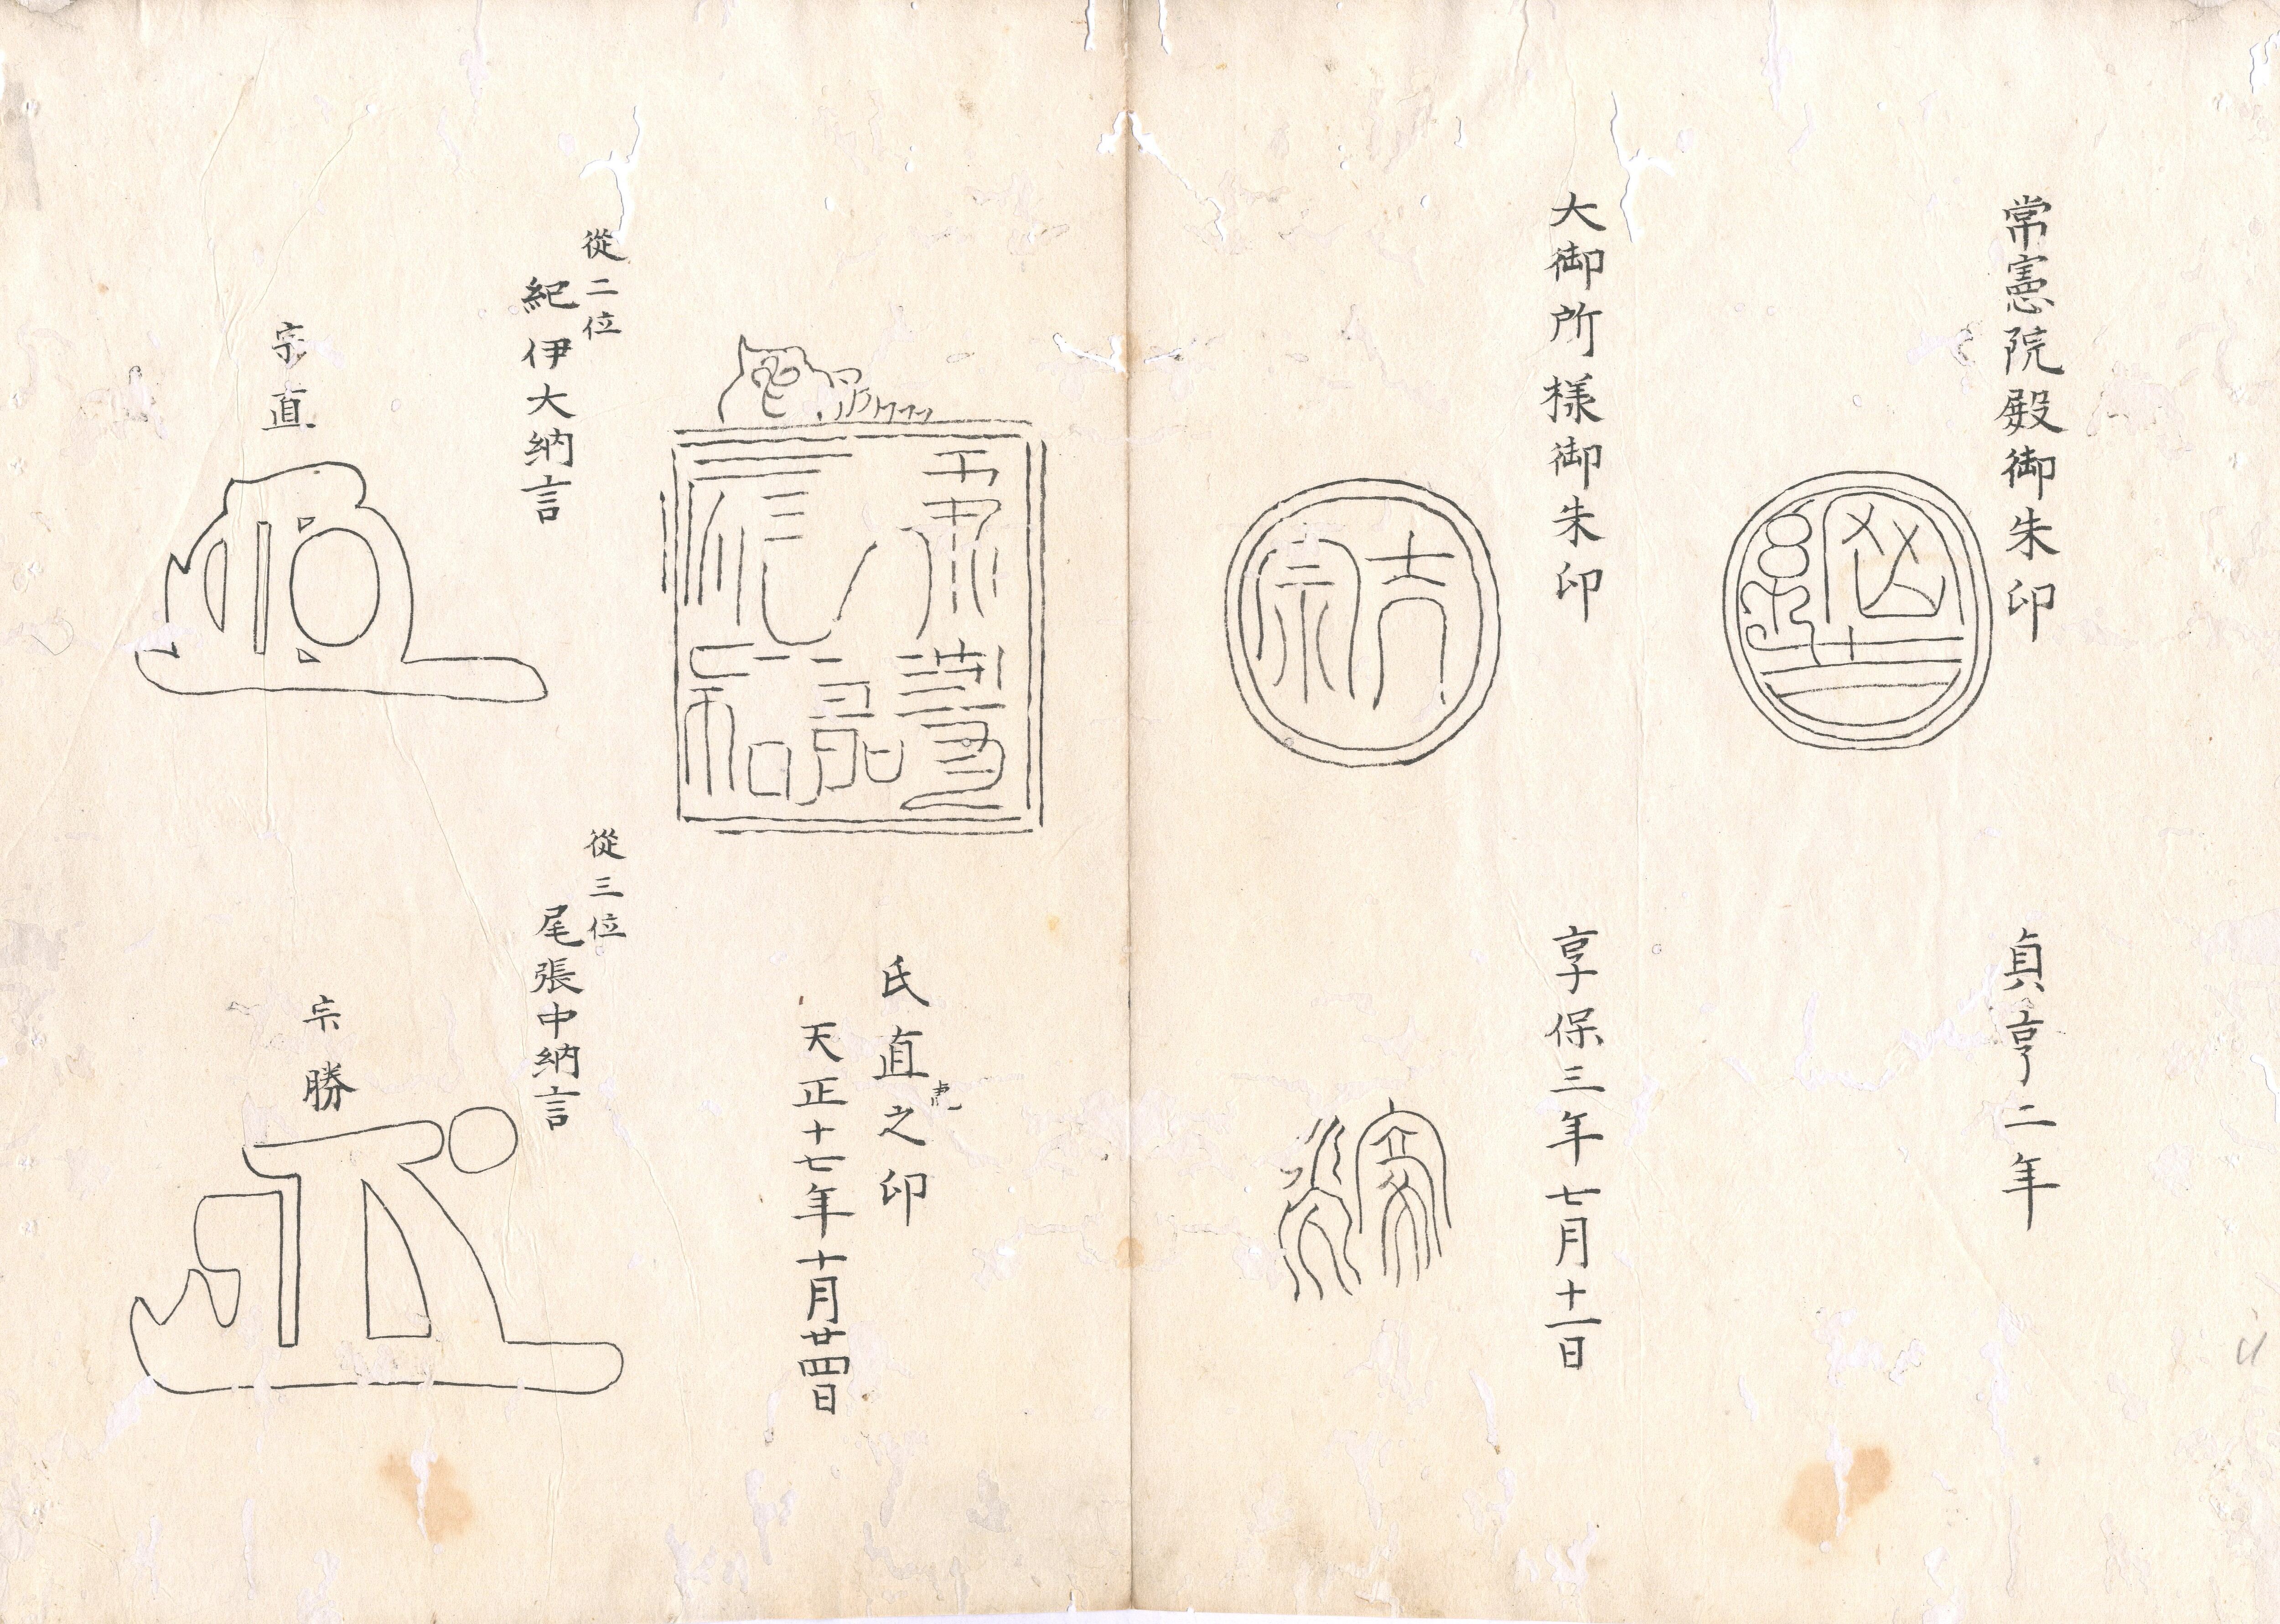 常憲院殿御朱印
貞享二年
大御所様御朱印
享保三年七月十一日
氏直之印
虎
天正十七年十月廿四日
從二位
紀伊大納言
宗直
從三位
尾張中納言
宗勝